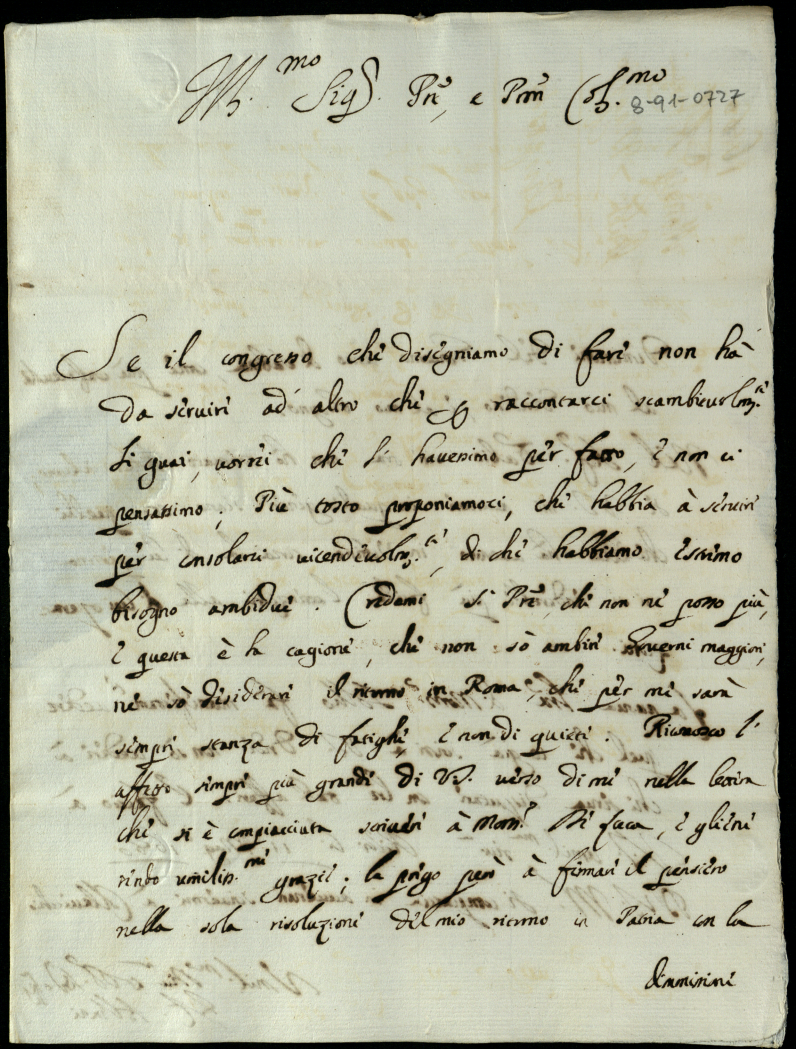 Ill.mo Sig.r P.re, e P.ron Col.mo
8-91-0727
Se il congresso che disegniamo di fare non hà
da servire ad altro che p raccontarci scambievolm.te
li guai, vorrei che l' havessimo per fatto, e non ci
pensassimo; Più tosto proponiamoci, che habbia à servire
per consolarci vicendevolm.te, di che habbiamo estremo
bisogno ambidue. Credami S.r P.re, che non ne posso più,
e questa è la cagione, che non sò ambire Governi maggiori,
ne sò disiderare il ritorno in Roma, che per me sarà
sempre stanza di fatighe, e non di quiete. Riconosco l'
affetto sempre più grande di V.S. verso di me nella lettera
che si è compiaciuta scrivere à Mons.r, e gliene
rendo umiliss.me grazie; la prego però à fermare il pensiero
nella sola risoluzione del mio ritorno in Patria con la
dimmissione